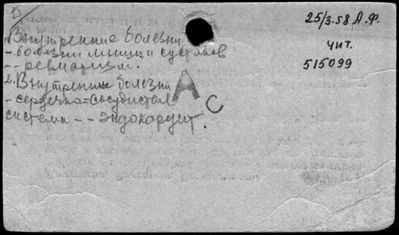 1. Внутренние болезни
- болезни мышц и суставов
-- ревматизм.
2. Внутренние болезни
- сердечно-сосудистая
система -- эндокардит.
А
С
25/3.58 А.Ф.
чит.
515099